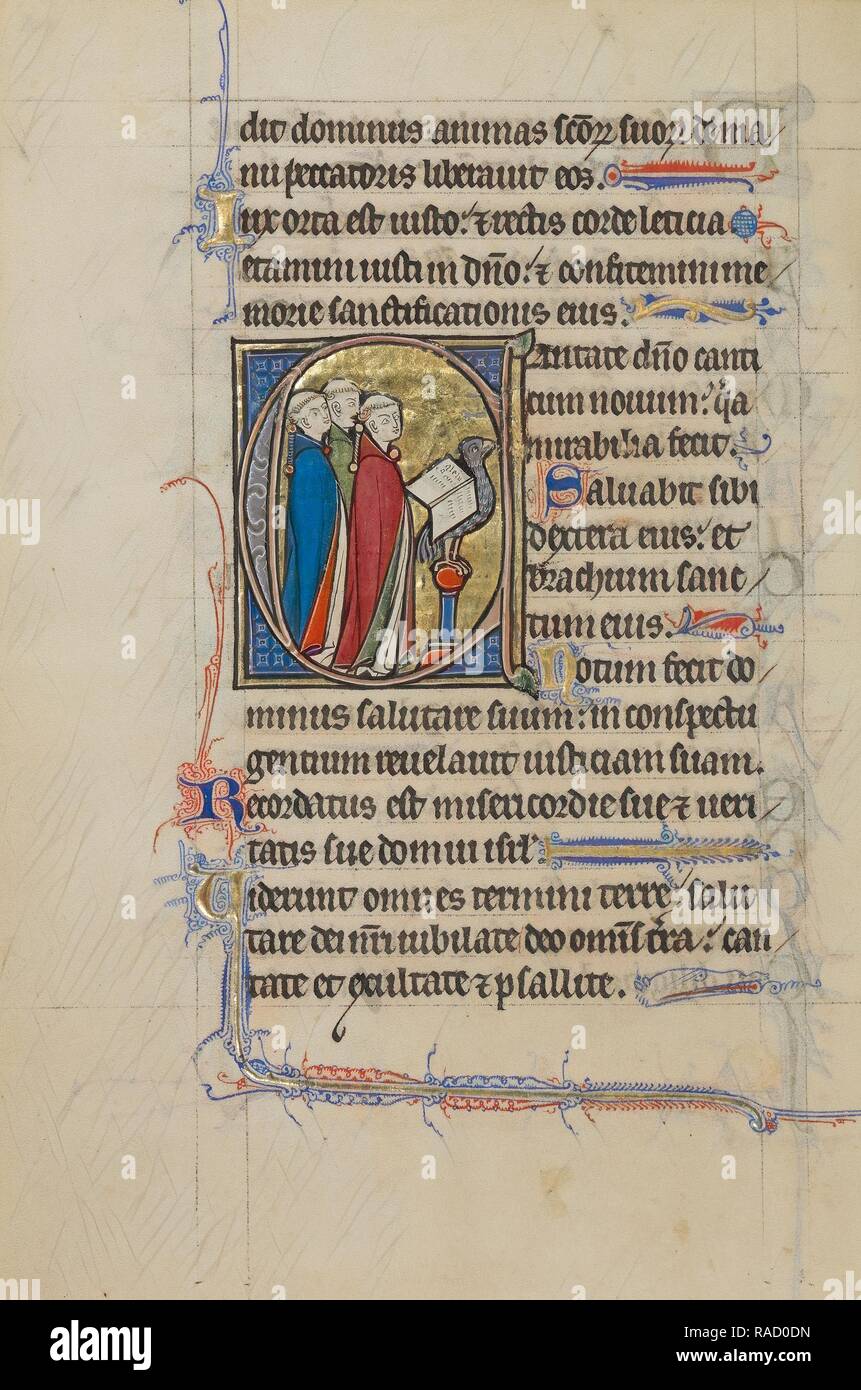 dit dominus animas scõꝝ suoꝝ de ma/
nu peccatoris liberauit eos.
Lux orta est iusto: ⁊ rectis corde leticia
etamini iusti in dño: ⁊ confitemini me/
morie sanctificationis eius.
Cantate dño canti
cum nouum: q̃a
mirabilia fecit.
Saluabit sibi
dextera eius: et
brachium sanc/
tum eius.
Notum fecit do
minus salutare suum: in conspectu
gentium reuelauit iusticiam suam.
Recordatus est misericordie sue ⁊ ueri
tatis sue domui isrl'.
Uiderunt omnes termini terre: salu
tare dei nr̃i iubilate deo omĩs t̃ra: can/
tate et exultate ⁊ psallite.
alamy
Image ID: RAD0DN
www.alamy.com